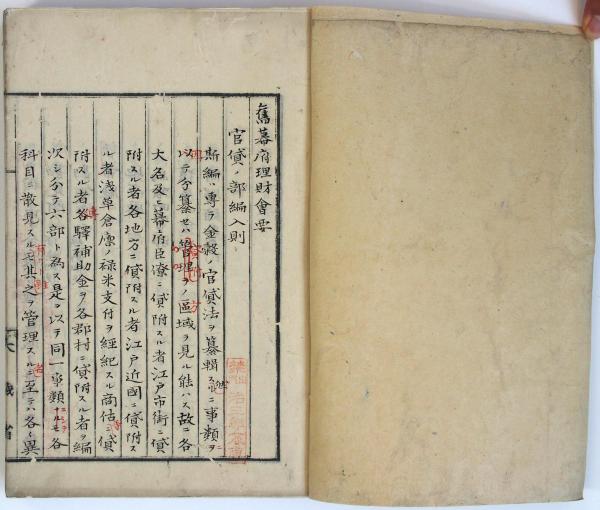 舊幕府理財會要
官貸ノ部編入則
斯編ハ專ラ金穀ノ官貸法ヲ纂輯ス 事類ヲ
以テ分纂セハ管理ヲノ區域ヲ見ル能ハス故ニ各
大名及ヒ幕府臣僚ニ貸附スル者江戸市街ニ貸
附スル者各地方ニ貸附スル者江戸近國ニ貸附ス
ル者浅草倉廩ノ禄米支付ヲ經紀スル商估ニ貸
附スル者各驛補助金ヲノ各郡村ニ貸附スル者ヲ編
次シ分テ六部ト為ス是ヲ以テ同一事類ニ ルモ各
科目ニ散見スルモ其之ヲ管理スル ニ至テハ各々異
大藏省